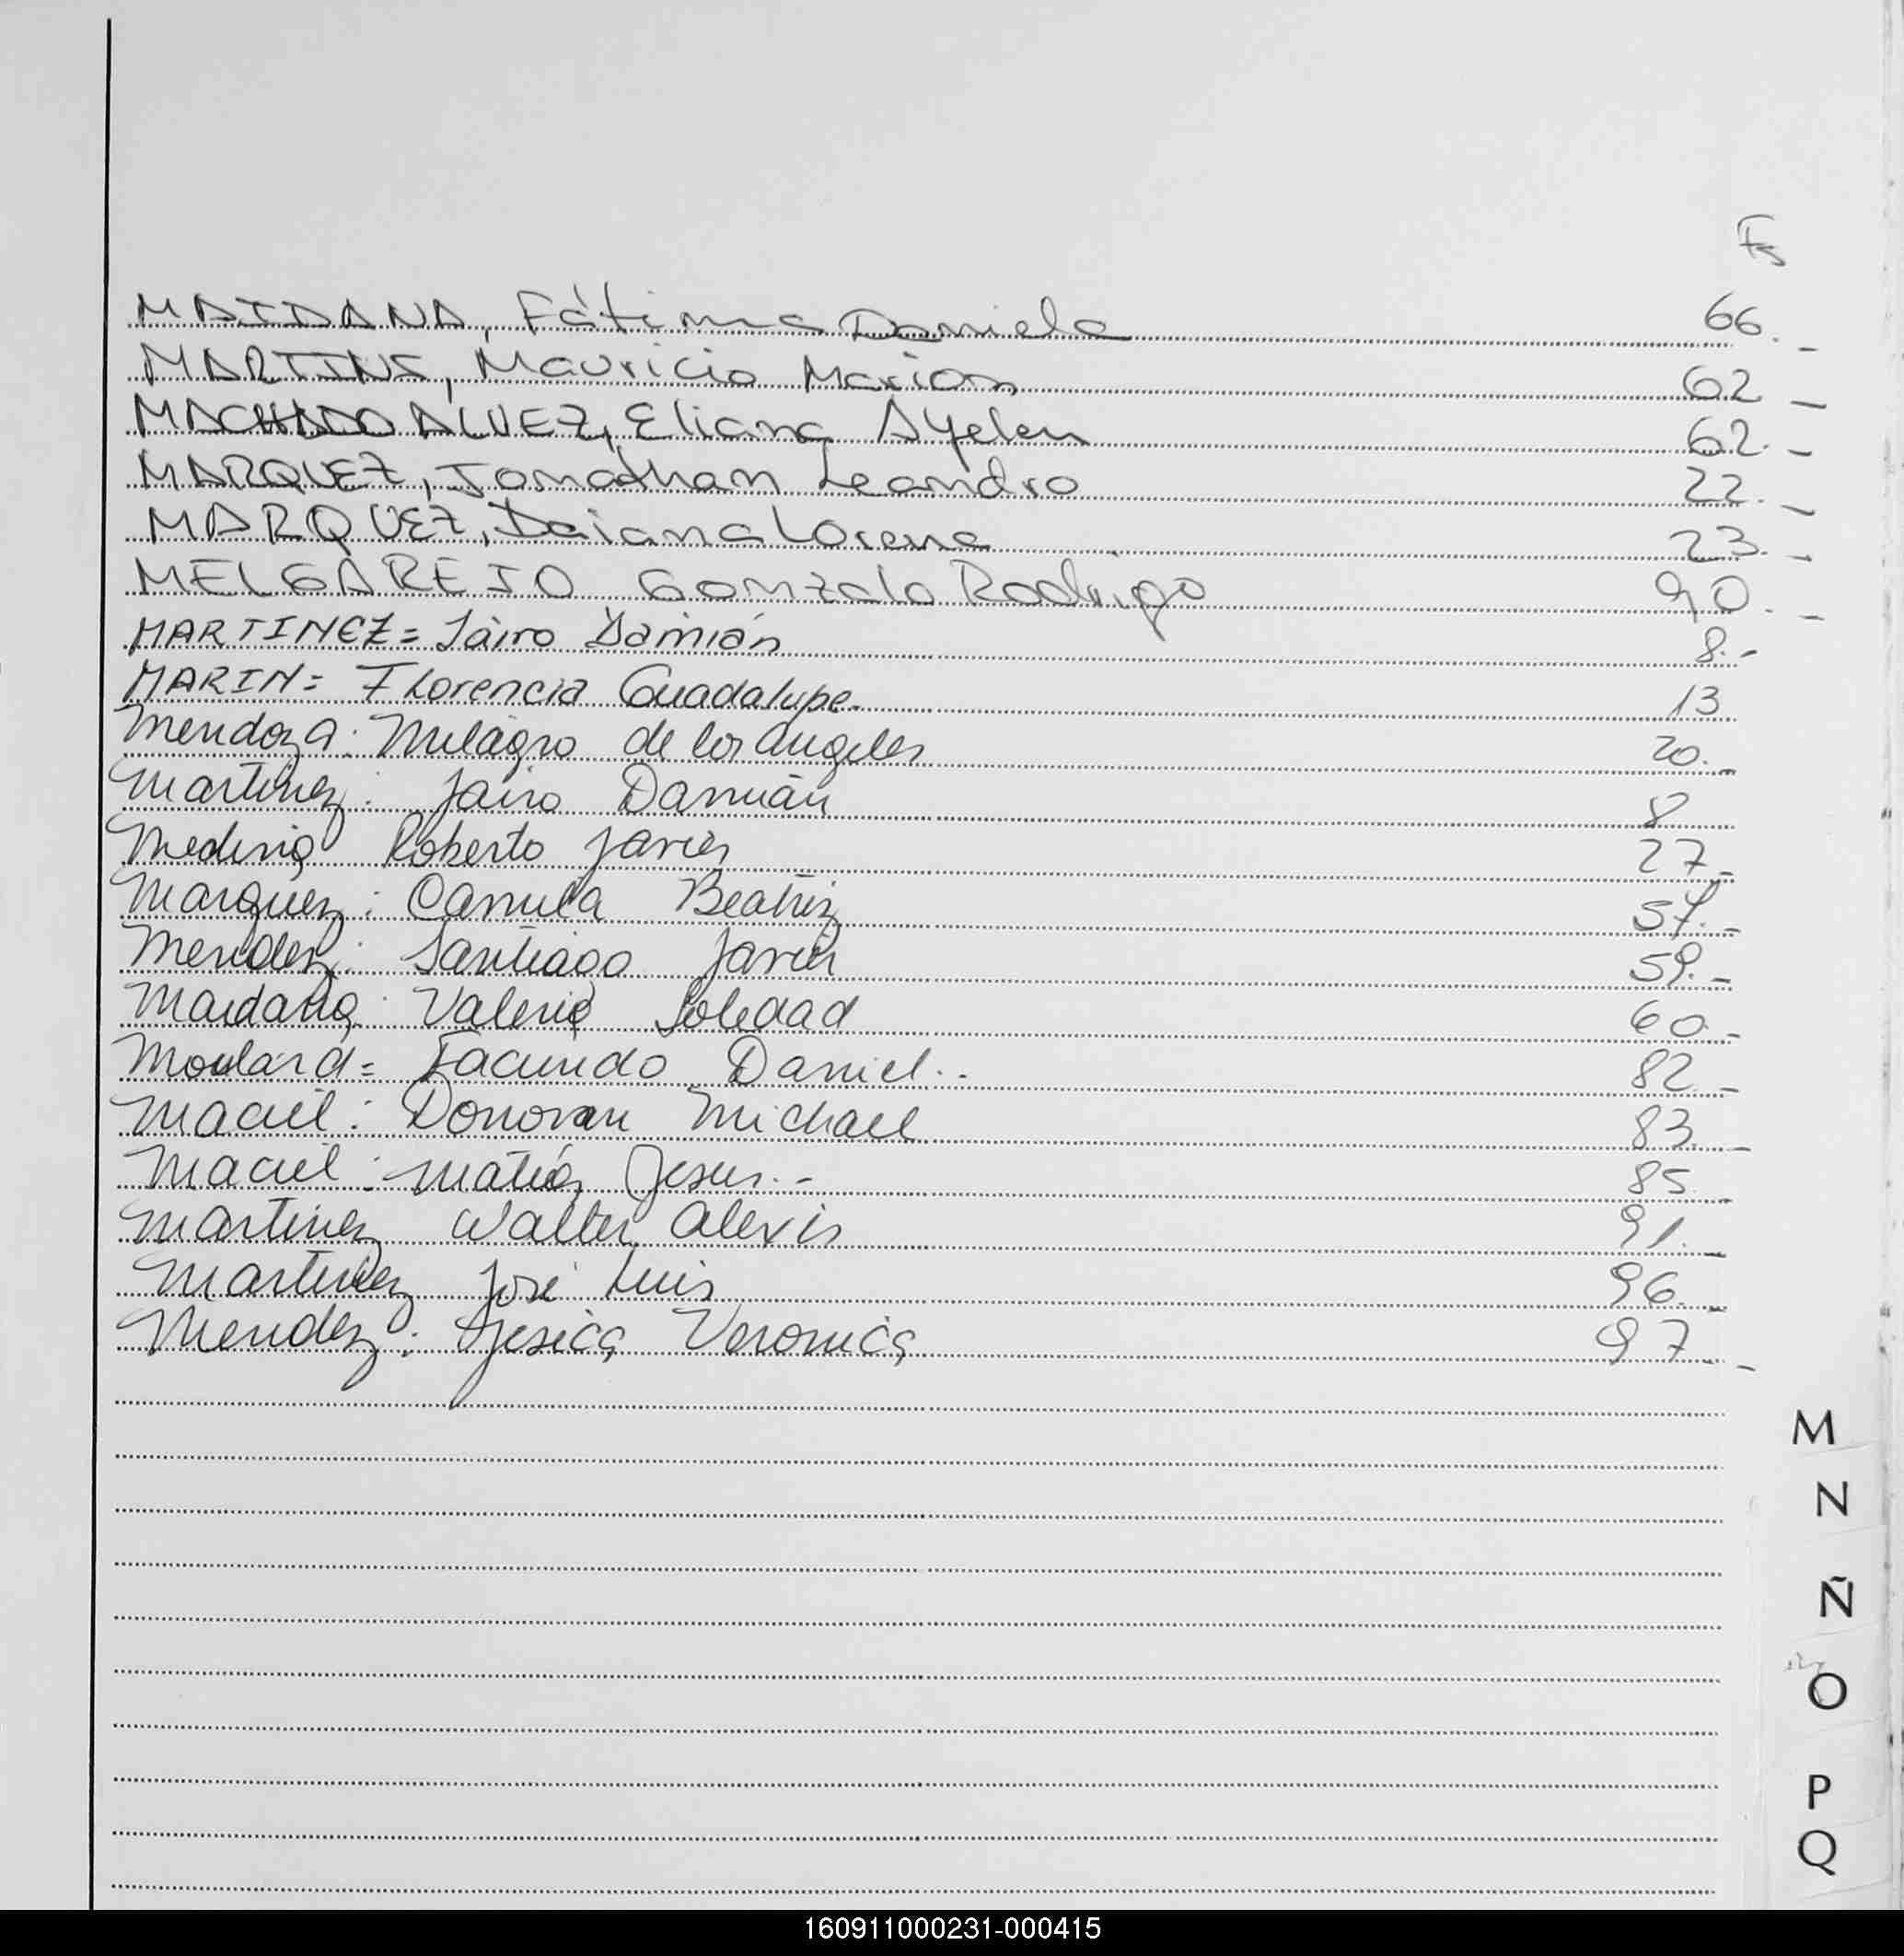 Fs
MAIDANA, Fátima Daniela 66.-
MARTINS, Mauricio Marion 62 -
MACHADO ALVEZ, Eliana Ayelen 62.-
MARQUEZ, Jonathan Leandro 22.-
MARQUEZ, Daiana Lorena 23.-
MELGAREJO Gonzalo Rodrigo 90.-
MARTINEZ= Jairo Damián 8.-
MARIN= Florencia Guadalupe. 13
Mendoza: Milagro de los Angeles 20.-
Martinez: Jairo Damián 8
Medina Roberto Javier 27-
Marquez: Camila Beatriz 57.-
Mendez: Santiago Javier 59.-
Maidana: Valeria Soledad 60.-
Moulard= Facundo Daniel.. 82-
Maciel: Donovan Michael 83.-
Maciel: Matías Jesus.- 85-
Martinez Walter Alexis 91.-
Martinez José Luis 96.-
Mendez: Jesica Veronica 97-
M
N
Ñ
O
P
Q
160911000231-000415